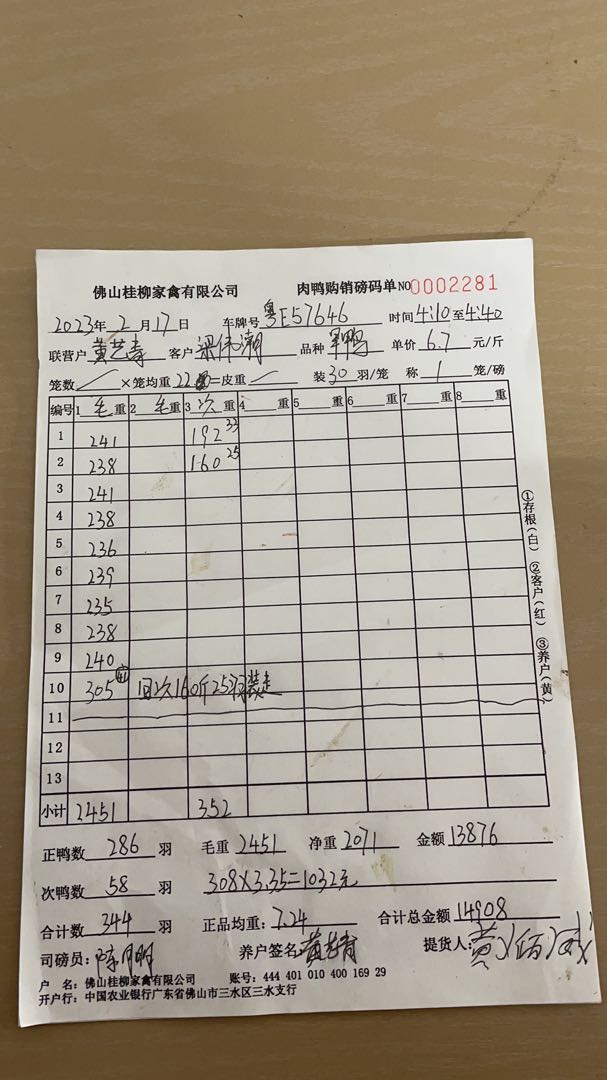 佛山桂柳家禽有限公司 肉鸭购销磅码单 NO 0002281
2023年 2 月 17 日 车牌号 粤E57646 时间 4:10 至 4:40
联营户 黄艺青 客户 梁伟潮 品种 单价 6.7 元/斤
笼数 ×笼均重 22 =皮重 装 30 羽/笼 称 1 笼/磅
编号 1 毛 重 2 毛 重 3 次 重 4 重 5 重 6 重 7 重 8 重
1 241 192 33
2 238 160 25
3 241
4 238
5 236
6 239
7 235
8 238
9 240
10 305 次160斤25只装走
11
12
13
小计 2451 352
①存根(白) ②客户(红) ③养户(黄)
正鸭数 286 羽 毛重 2451 净重 2071 金额 13876
次鸭数 58 羽 308×3.35=1032元
合计数 344 羽 正品均重: 7.24 合计总金额 14908
司磅员: 养户签名 黄艺青 提货人: 黄
户 名: 佛山桂柳家禽有限公司 账号: 444 401 010 400 169 29
开户行: 中国农业银行广东省佛山市三水区三水支行